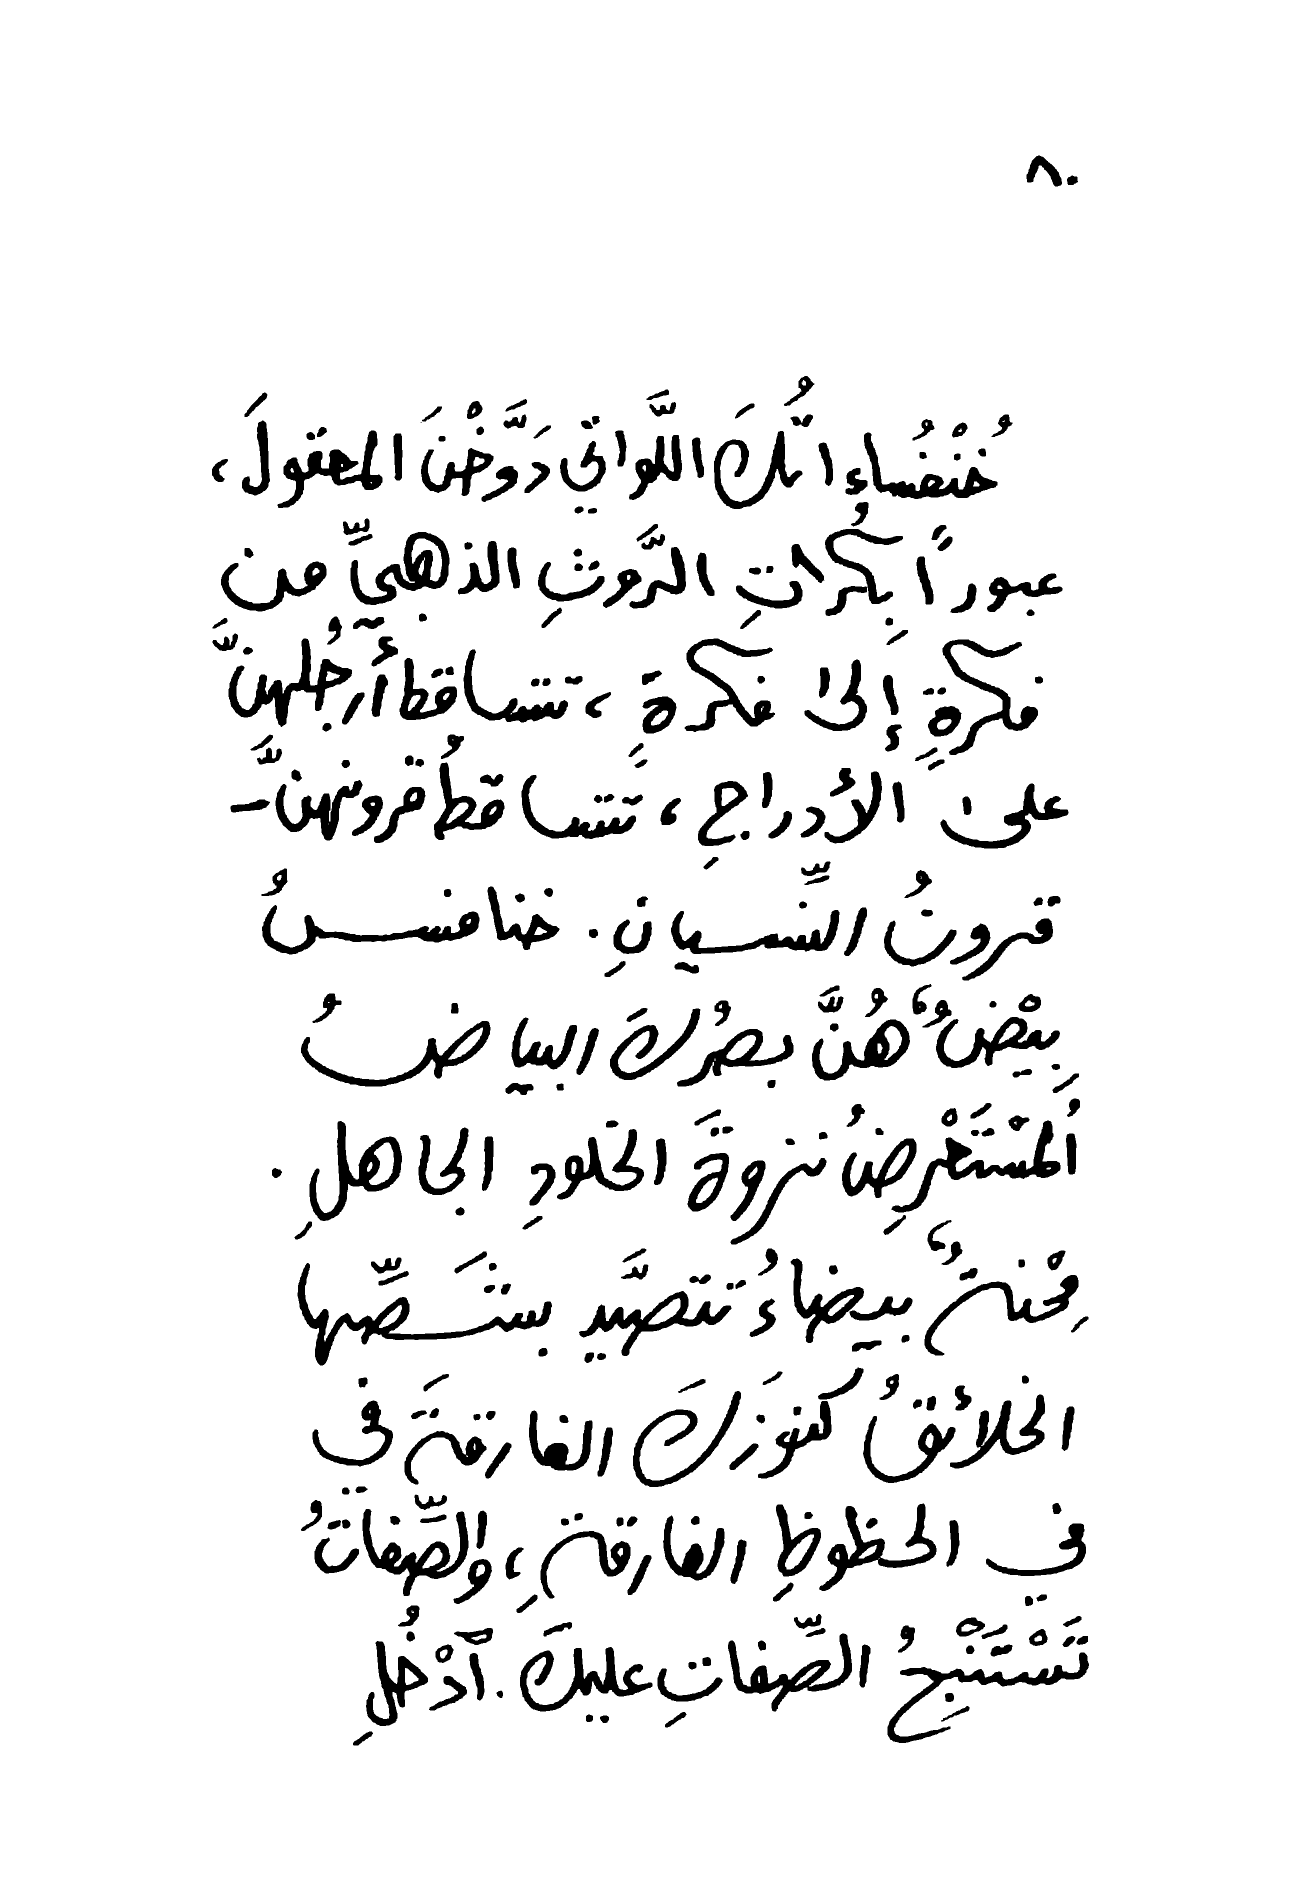 ٨٠
خُنْفُساءاتُكَ اللَّواتي دَوَّخْنَ المعقولَ،
عبوراً بكُراتِ الرَّوثِ الذهبيِّ من
فكرةٍ إلى فكرةٍ، تتساقط أرجُلهنَّ
على الأدراجِ، تتساقطُ قرونهنَّ –
قرونُ النِّسيانِ. خنافسُ
بِيْضٌ، هُنَّ بصرُكَ البياضُ
المُسْتَعْرِضُ نزوةَ الخلودِ الجاهلِ.
مِحْنةٌ، بيضاءُ تتصيَّد بشَصِّها
الخلائقُ كنوزَكَ الغارقةَ في
في الحظوظِ الغارقةِ، والصِّفاتُ
تَسْتَنْبِحُ الصِّفاتِ عليكَ. اَدْخُلِ